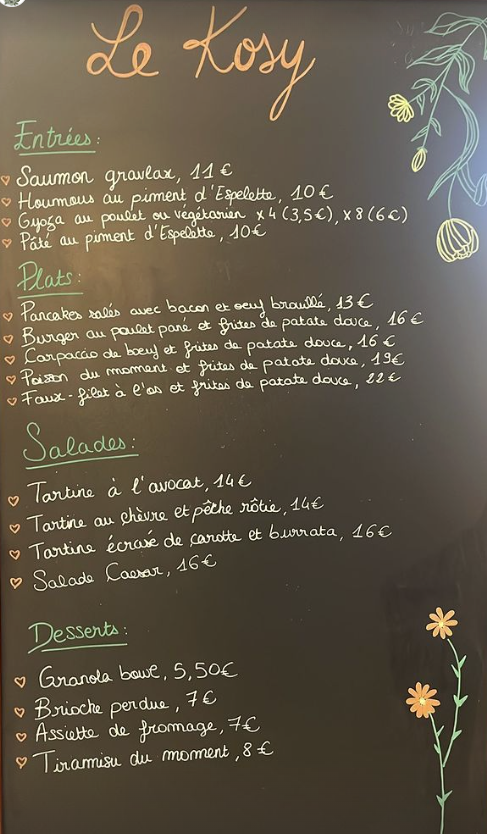 Le Kosy
Entrées:
Saumon gravlax, 11€
Houmous au piment d'Espelette, 10€
Gyoza au poulet ou végétarien x4 (3,5€), x8 (6€)
Pâté au piment d'Espelette, 10€
Plats:
Pancakes salés avec bacon et oeuf brouillé, 13€
Burger au poulet pané et frites de patate douce, 16€
Carpaccio de bœuf et frites de patate douce, 16€
Poisson du moment et frites de patate douce, 19€
Faux-filet à l'os et frites de patate douce, 22€
Salades:
Tartine à l'avocat, 14€
Tartine au chèvre et pêche rôtie, 14€
Tartine écrasé de carotte et burrata, 16€
Salade Caesar, 16€
Desserts:
Granola bowl, 5,50€
Brioche perdue, 7€
Assiette de fromage, 7€
Tiramisu du moment, 8€